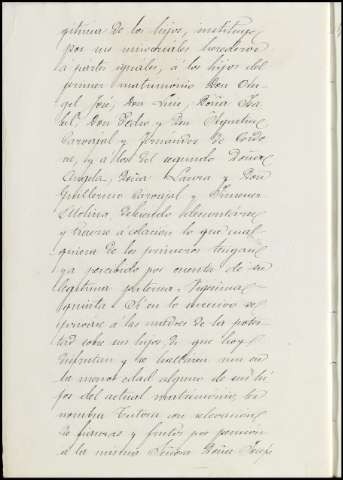 gitima de los hijos, instituyo
por sus universales herederos
á partes iguales, á los hijos del
primer matrimonio Don An-
gel José, Don Luis, Doña Isa-
bel, Don Pedro y Don Agustin
Carvajal y Fernández de Córdo-
va, y a los del segundo Doña
Angela, Doña Laura y Don
Guillermo Carvajal y Jimenez
Molina, debiendo
y traerse á colacion lo que cual-
quiera de los primeros tengan
ya percibido por cuenta de su
legitima paterna.
quinta Si en lo sucesivo se
privase á las madres de la potes-
tad sobre sus hijos, de que hoy
disfrutan y se hallasen aun en
la menor edad alguno de sus hi-
jos del actual matrimonio, les
nombra tutora con relevacion
de fianzas y frutos por pension
a la misma Señora Doña Josefa